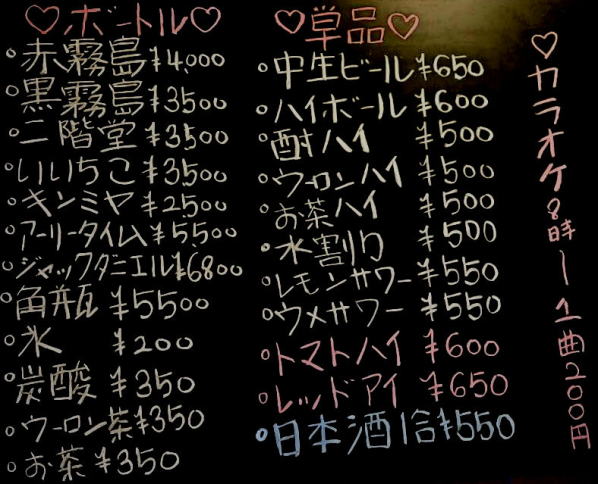 ♡ボトル♡
◦赤霧島¥4,000
◦黒霧島¥3500
◦二階堂¥3,500
◦いいちこ¥3,500
◦キンミヤ¥2,500
◦アーリータイム¥5,500
◦ジャックダニエル¥6800
◦角瓶¥5500
◦氷 ¥200
◦炭酸¥350
◦ウーロン茶¥350
◦お茶¥350
♡単品♡
◦中生ビール¥650
◦ハイボール¥600
◦酎ハイ ¥500
◦ウーロンハイ¥500
◦お茶ハイ ¥500
◦水割り ¥500
◦レモンサワー¥550
◦ウメサワー¥550
◦トマトハイ¥600
◦レッドアイ ¥650
◦日本酒1合¥550
♡カラオケ8時〜1曲200円